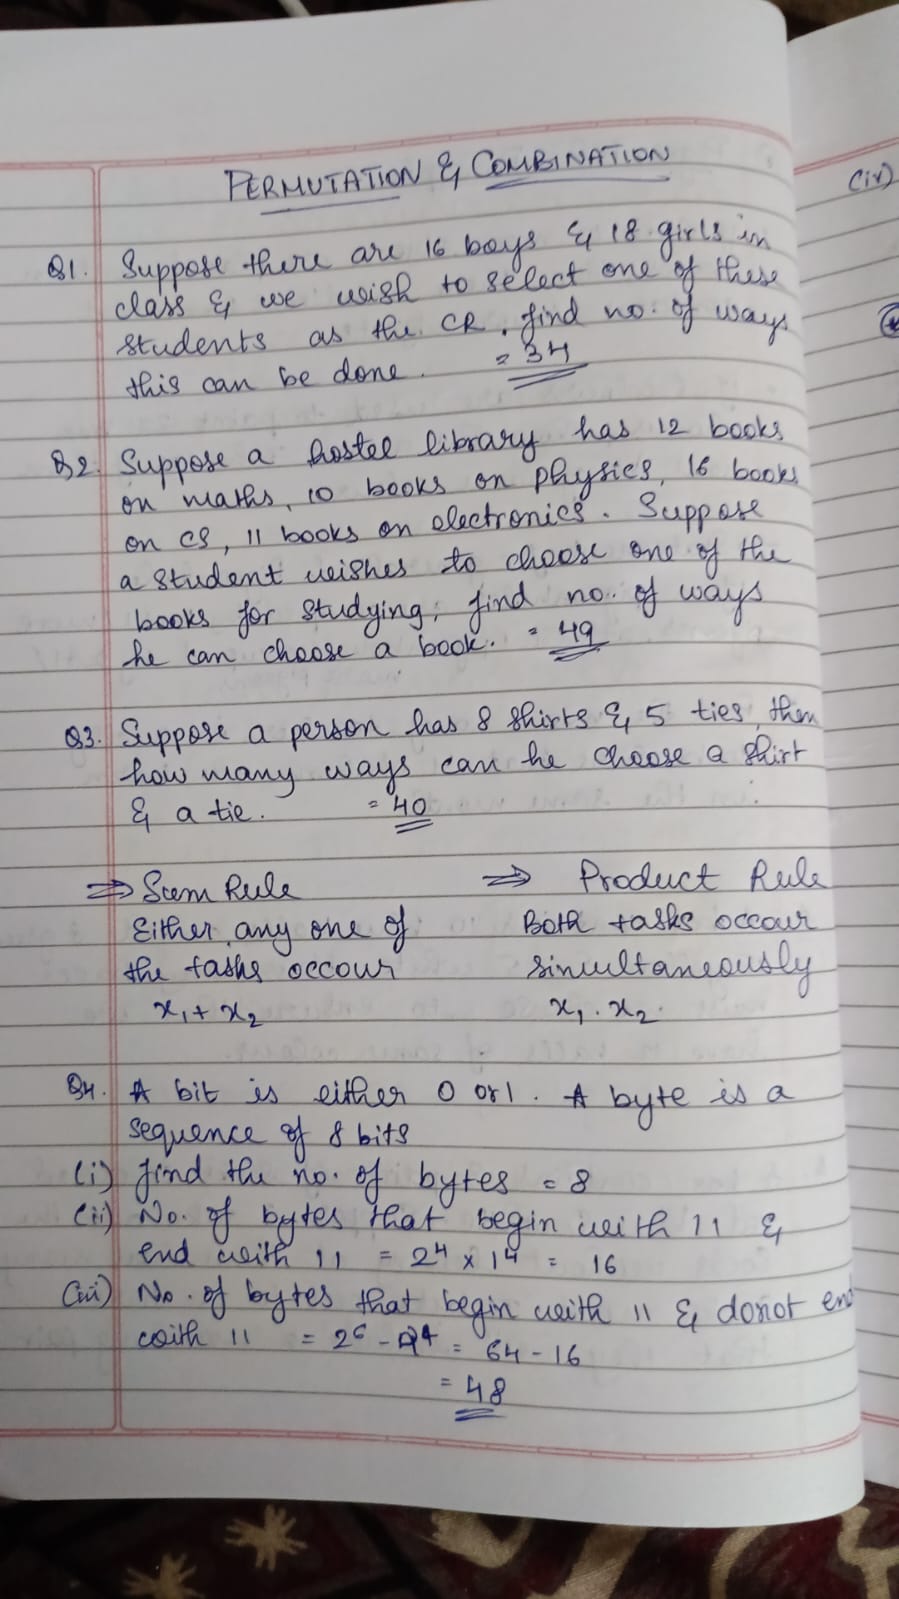 PERMUTATION & COMBINATION
(iv)
Q1. Suppose there are 16 boys & 18 girls in
class & we wish to select one of these
students as the CR, find no. of ways
this can be done. = 34
Q2. Suppose a hostel library has 12 books
on maths, 10 books on physics, 16 books
on CS, 11 books on electronics. Suppose
a student wishes to choose one of the
books for studying, find no. of ways
he can choose a book. = 49
Q3. Suppose a person has 8 shirts & 5 ties, then
how many ways can he choose a shirt
& a tie. = 40
⇒ Sum Rule
Either any one of
the tasks occour
x₁ + x₂
⇒ Product Rule
Both tasks occour
simultaneously
x₁ . x₂.
Q4. A bit is either 0 or 1. A byte is a
sequence of 8 bits
(i) find the no. of bytes = 8
(ii) No. of bytes that begin with 11 &
end with 11 = 2⁴ x 1⁴ = 16
(iii) No. of bytes that begin with 11 & donot end
with 11 = 2⁶ - 2⁴ = 64 - 16
= 48